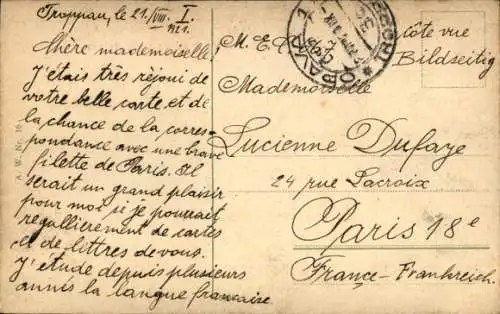 Troppau, le 21./VIII. I.
1921.
Chère mademoiselle,
J'étais très réjoui de
votre belle carte, et de
la chance de la corres-
pondance avec une brave
filette de Paris. Il
serait un grand plaisir
pour moi si je pourrait
regallierement de cartes
et de lettres de vous.
J'étude depuis plusieurs
anneés la langue francaise.
A. W. Nr. 16
OPAVA 1
côte vue
Bildseitig
Mademoiselle
Lucienne Dufaye
24 rue Lacroix
Paris 18e
France-Frankreich.